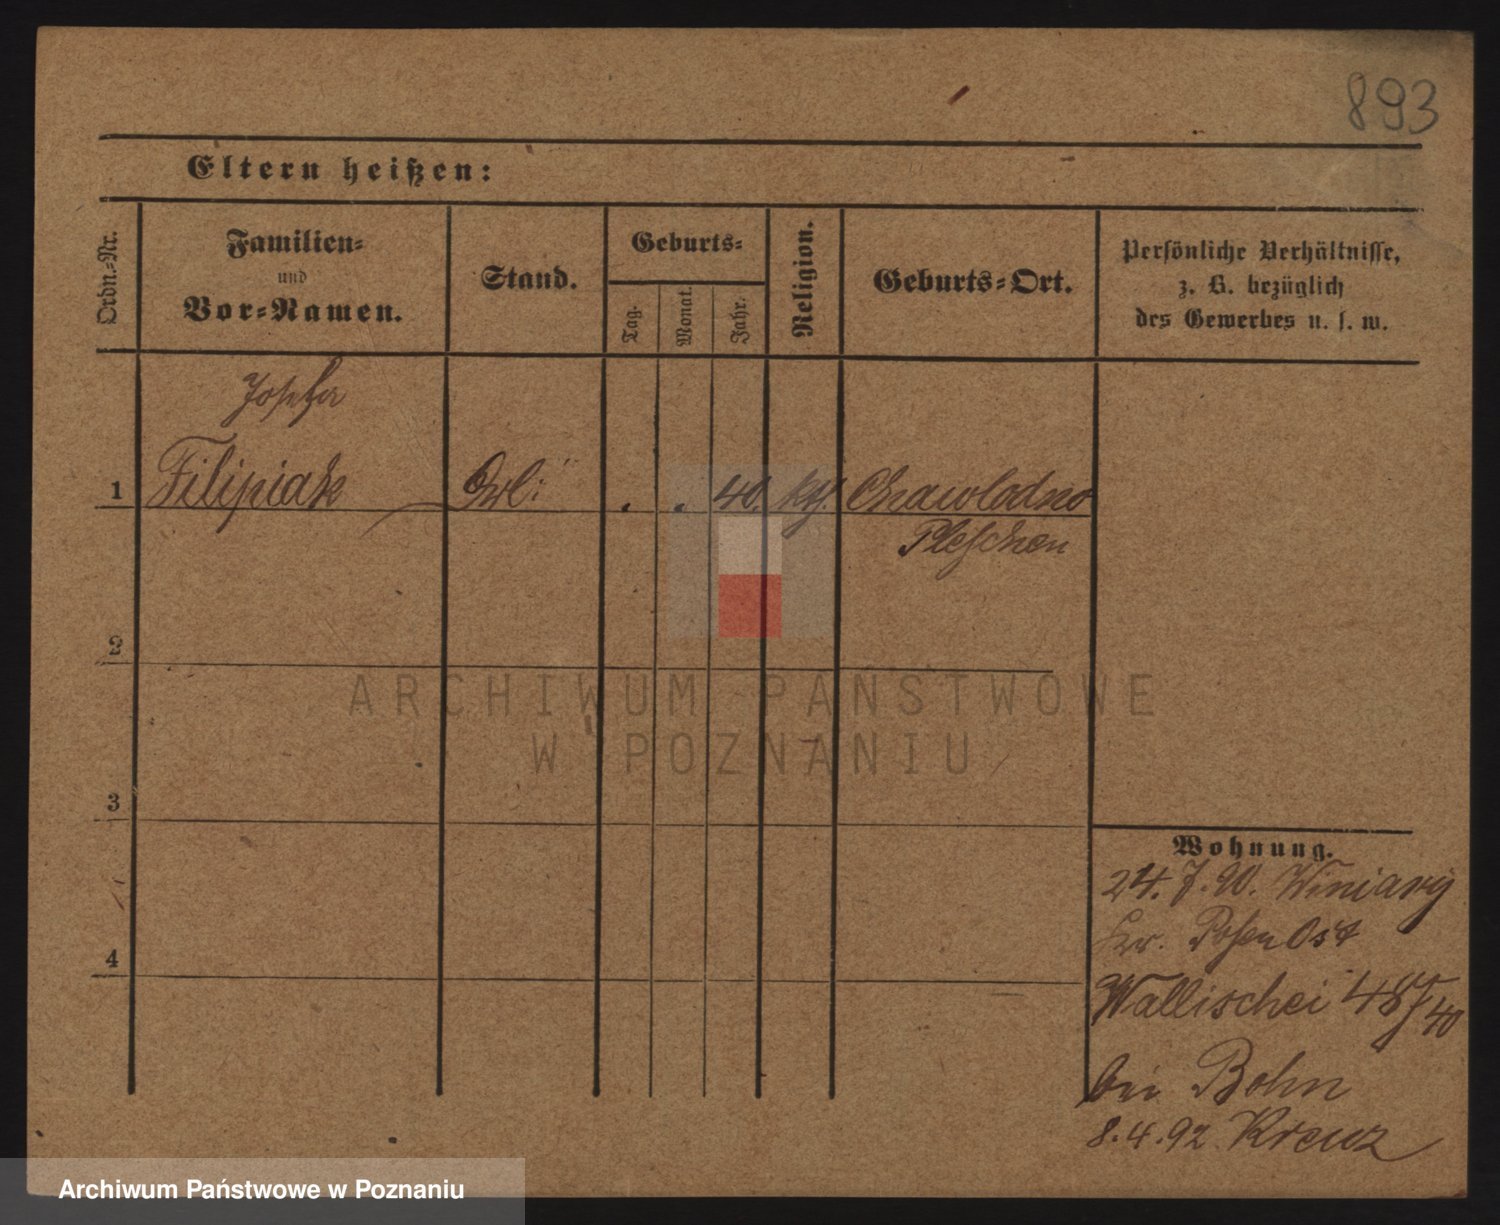 893
Eltern heißen:
Ordn.-Nr.
Familien-
und
Vor-Namen.
Stand.
Geburts-
Tag.
Monat.
Jahr.
Religion.
Geburts-Ort.
Persönliche Verhältnisse,
z. B. bezüglich
des Gewerbes u. s. w.
Josefa
1 Filipiak . . 40. kth.
Pleschen
2
3
4
ARCHIWUM PAŃSTWOWE
W POZNANIU
Wohnung.
24. 7. 90. Winiary
Kr. Posen Ost
Wallischei
bei Bohn
8.4.92 Kreuz
Archiwum Państwowe w Poznaniu